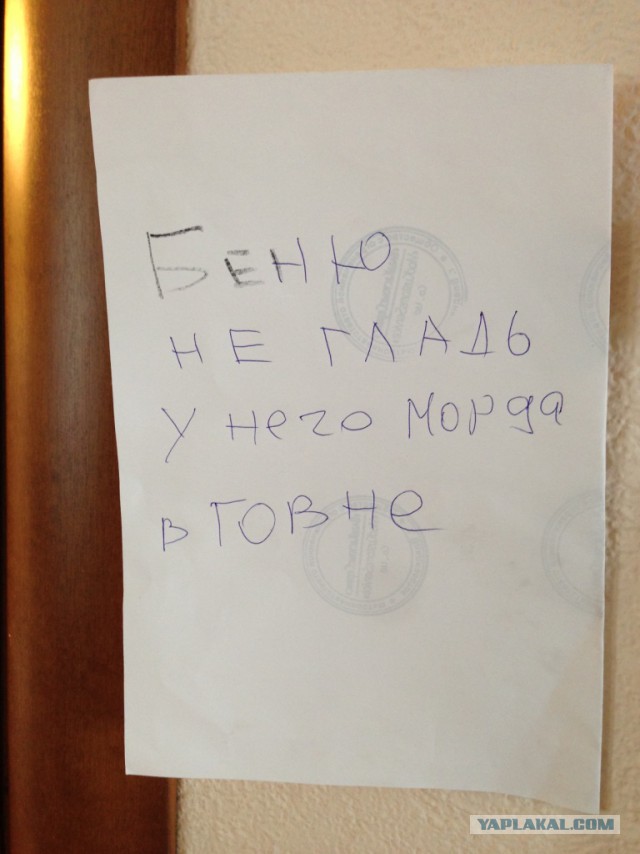 Беню
не гладь
у него морда
в говне
YAPLAKAL.COM